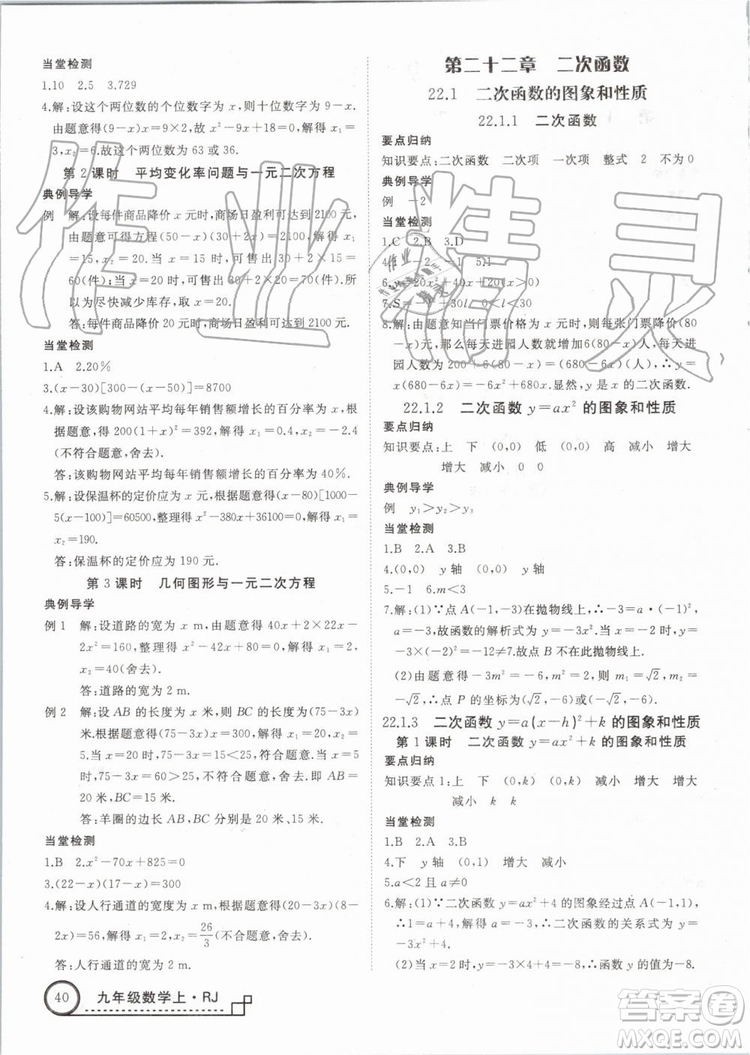 当堂检测
1.10 2.5 3.729
4.解：设这个两位数的个位数字为 x，则十位数字为 9－x.
由题意得(9－x)＝9×2，
x₂＝6.故这个两位数为 63 或 36.
第 2 课时 平均变化率问题与一元二次方程
典例导学
例 解：设每件商品降价 x 元时，商场日盈利可达到 2100 元，
由题意可得方程(50－x)(30＋2x)＝2100，
60(件)；当 x＝20 时，可售出 30＋2×20＝70(件)，
所以为尽快减少库存，x＝20.
答：每件商品降价 20 元时，商场日盈利可达到 2100 元.
当堂检测
1.A 2.20%
3.(x－30)[300－5(x－50)]＝8700
4.解：设该购物网站平均每月销售额增长的百分率为 x，根
据题意，得 200(1＋x)²＝392，解得 x₁＝0.4，x₂＝－2.4
(不符合题意，舍去).
答：该购物网站平均每月销售额增长的百分率为 40%.
5.解：设保温杯的定价应为 x 元，根据题意得(x－80)[1000－
5(x－100)]＝60500，整理得 x²－380x＋36100＝0，解得 x₁＝
x₂＝190.
答：保温杯的定价应为 190 元.
第 3 课时 几何图形与一元二次方程
典例导学
例 1 解：设道路的宽为 x m，根据题意得 40x＋22x－
2x²＝160，解得 x₁＝2，x₂＝40(舍去).
答：道路的宽为 2 m.
例 2 解：设 AB 的长度为 x 米，则 BC 的长度为(75－3x)
米.根据题意得(75－3x)x＝300，解得 x₁＝20，x₂＝5.
当 x＝20 时，75－3x＝15；当 x＝5 时，75－3x＝
60.∵墙的最大可用长度为 30 米，∴x＝5 舍去.∴AB
＝20 米，BC＝15 米.
答：羊圈的边长 AB，BC 分别是 20 米，15 米.
当堂检测
1.B 2.x²－70x＋825＝0
3.(22－x)(17－x)＝300
4.解：设人行通道的宽度为 x m，根据题意得(20－3x)(8－
2x)＝56，解得 x₁＝2，x₂＝26/3(不符合题意，舍去).
答：人行通道的宽度为 2 m.
40 九年级数学上·RJ
第二十二章 二次函数
22.1 二次函数的图象和性质
22.1.1 二次函数
要点归纳
知识要点：二次函数 二次项 一次项 整式 2 不为 0
典例导学
例 －2
当堂检测
1.C 2.B 3.D
8.解：由题意知，当门票价格为 x 元时，则每张门票降价(80
－x)元，故每天进园人数增加 6(80－x)人.故每天进
园人数为 200＋6(80－x)＝(680－6x)人.由题意得 y＝
x(680－6x)＝－6x²＋680x.显然，y 是 x 的二次函数.
22.1.2 二次函数 y＝ax² 的图象和性质
要点归纳
知识要点：上 下 (0，0) 低 (0，0) 高 减小 增大
增大 减小 0 0
典例导学
例 y₁＞y₂＞y₃
当堂检测
1.B 2.A 3.B
4.(0，0) y 轴 (0，0) y 轴
5.－1 6.m＜3
7.解：(1)∵点 A(－1，－3)在抛物线上，∴－3＝a·(－1)²，
a＝－3.故函数的解析式为 y＝－3x².当 x＝1 时，y＝－3×
1²＝－3≠3，故点 B 不在此抛物线上.
(2)由题意得－3m²＝－6，即 m²＝2，则 m₁＝√2，m₂＝
－√2，∴点 P 的坐标为(√2，－6)或(－√2，－6).
22.1.3 二次函数 y＝a(x－h)²＋k 的图象和性质
第 1 课时 二次函数 y＝ax²＋k 的图象和性质
要点归纳
知识要点 1：上 下 (0，k) (0，k) 增大 减小 增大
减小 k k
当堂检测
1.B 2.A 3.A
4.下 y 轴 (0，1) 增大 减小
5.a＜2 且 a≠0
6.解：(1)∵二次函数 y＝ax²＋4 的图象经过点 A(－1，1)，
∴1＝a＋4，解得 a＝－3.
∴二次函数的关系式为 y＝－3x²＋4.
(2)将 x＝2 代入 y＝－3x²＋4，解得 y＝－8，∴m 的值为－8.
答案圈
MXQE.COM